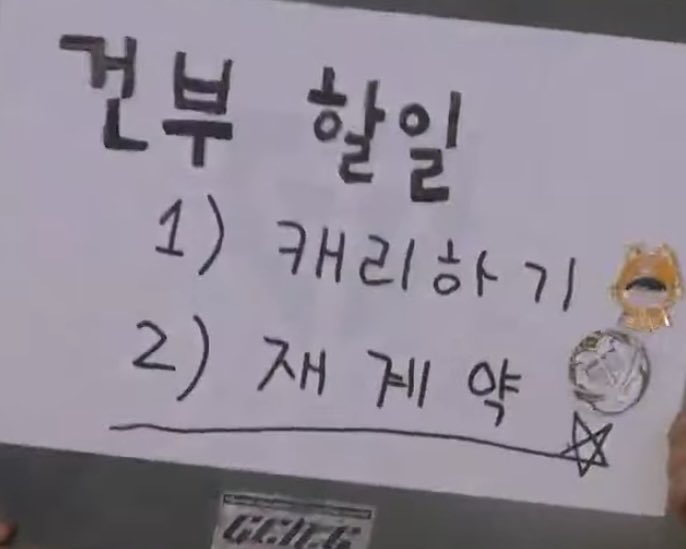 건부 할일
1) 캐리하기
2) 재계약